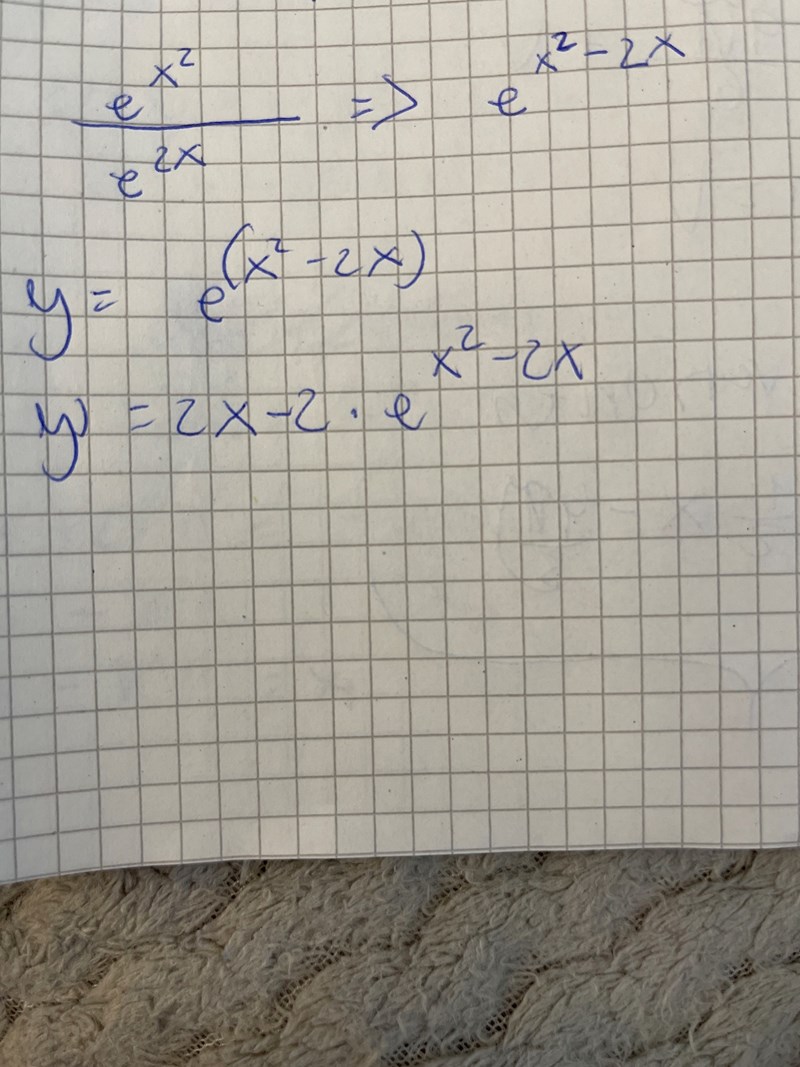 e^{x^2} / e^{2x} => e^{x^2-2x}
y = e^{(x^2-2x)}
y' = 2x-2 · e^{x^2-2x}